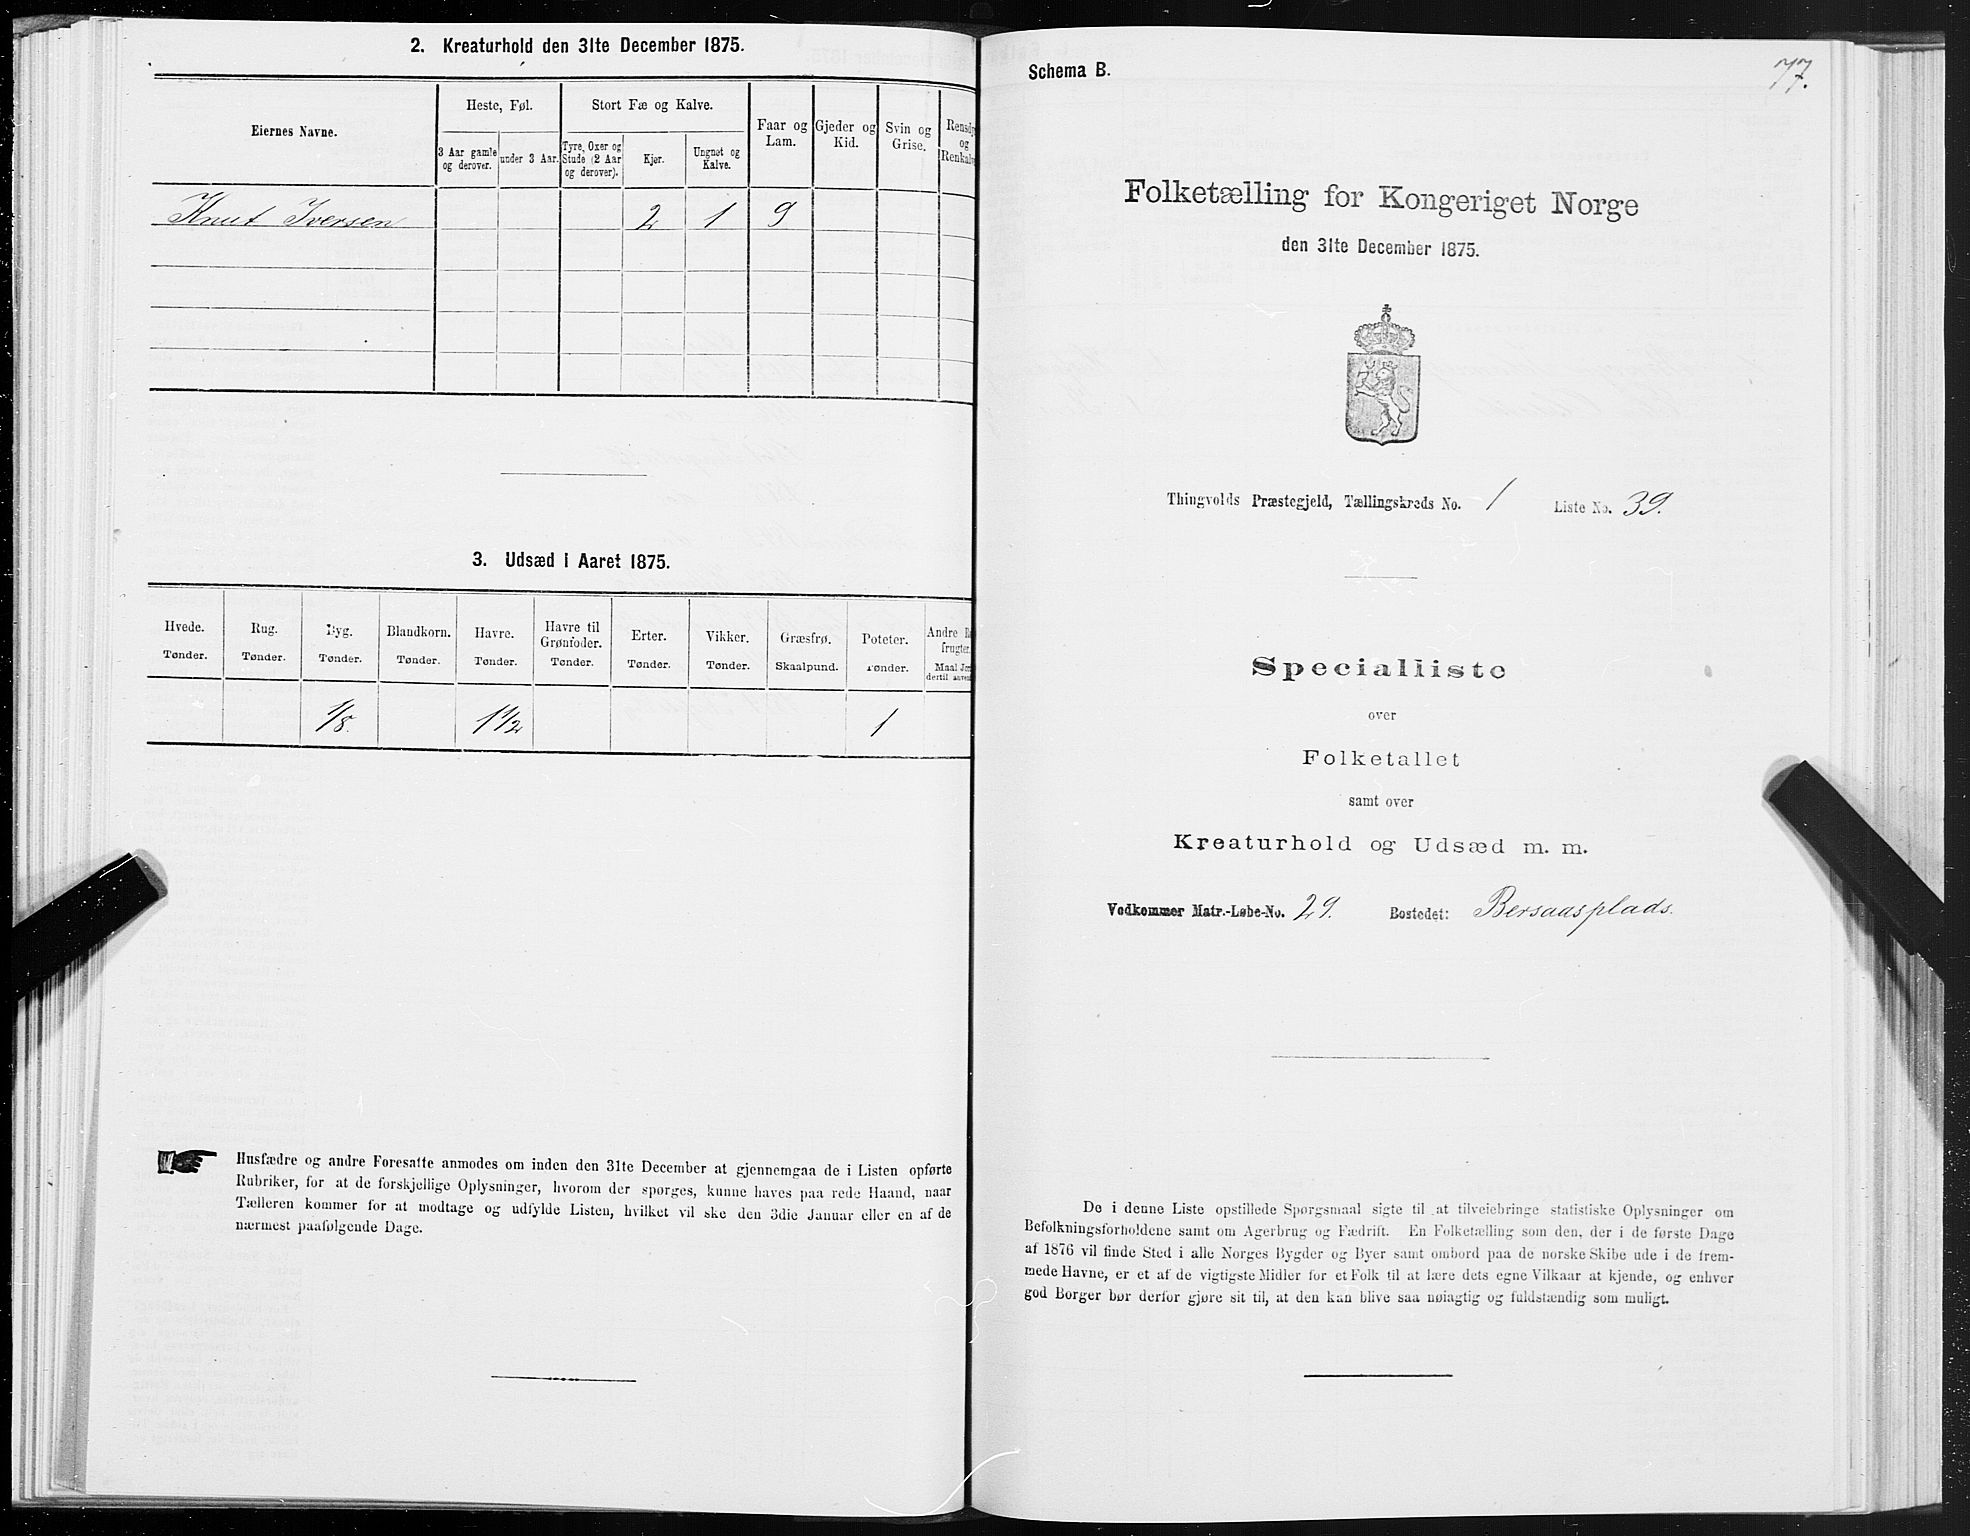 2. Kreaturhold den 31te December 1875.
Eiernes Navne.
Heste, Føl.
Stort Fæ og Kalve.
Faar og Lam.
Gjeder og Kid.
Svin og Grise.
og
3 Aar gamle og derover.
under 3 Aar.
Tyre, Oxer og Stude (2 Aar og derover).
Kjør.
Ungnøt og Kalve.
Knut Iversen 2 1 9
3. Udsæd i Aaret 1875.
Hvede. Tønder.
Rug. Tønder.
Byg. Tønder.
Blandkorn. Tønder.
Havre. Tønder.
Havre til Grønfoder. Tønder.
Erter. Tønder.
Vikker. Tønder.
Græsfrø. Skaalpund.
Poteter. Tønder.
Andre
Maal
dertil
1/8. 1 1/2 1
Husfædre og andre Foresatte anmodes om inden den 31te December at gjennemgaa de i Listen opførte
Rubriker, for at de forskjellige Oplysninger, hvorom der spørges, kunne haves paa rede Haand, naar
Tælleren kommer for at modtage og udfylde Listen, hvilket vil ske den 3die Januar eller en af de
nærmest paafølgende Dage.
Schema B.
77.
Folketælling for Kongeriget Norge
den 31te December 1875.
Thingvolds Præstegjeld, Tællingskreds No. 1 Liste No. 39.
Specialliste
over
Folketallet
samt over
Kreaturhold og Udsæd m. m.
Vedkommer Matr.-Løbe-No. 29. Bostedet: Bersaasplads.
De i denne Liste opstillede Spørgsmaal sigte til at tilveiebringe statistiske Oplysninger om
Befolkningsforholdene samt om Agerbrug og Fædrift. En Folketælling som den, der i de første Dage
af 1876 vil finde Sted i alle Norges Bygder og Byer samt ombord paa de norske Skibe ude i de frem-
mede Havne, er et af de vigtigste Midler for et Folk til at lære dets egne Vilkaar at kjende, og enhver
god Borger bør derfor gjøre sit til, at den kan blive saa nøiagtig og fuldstændig som muligt.